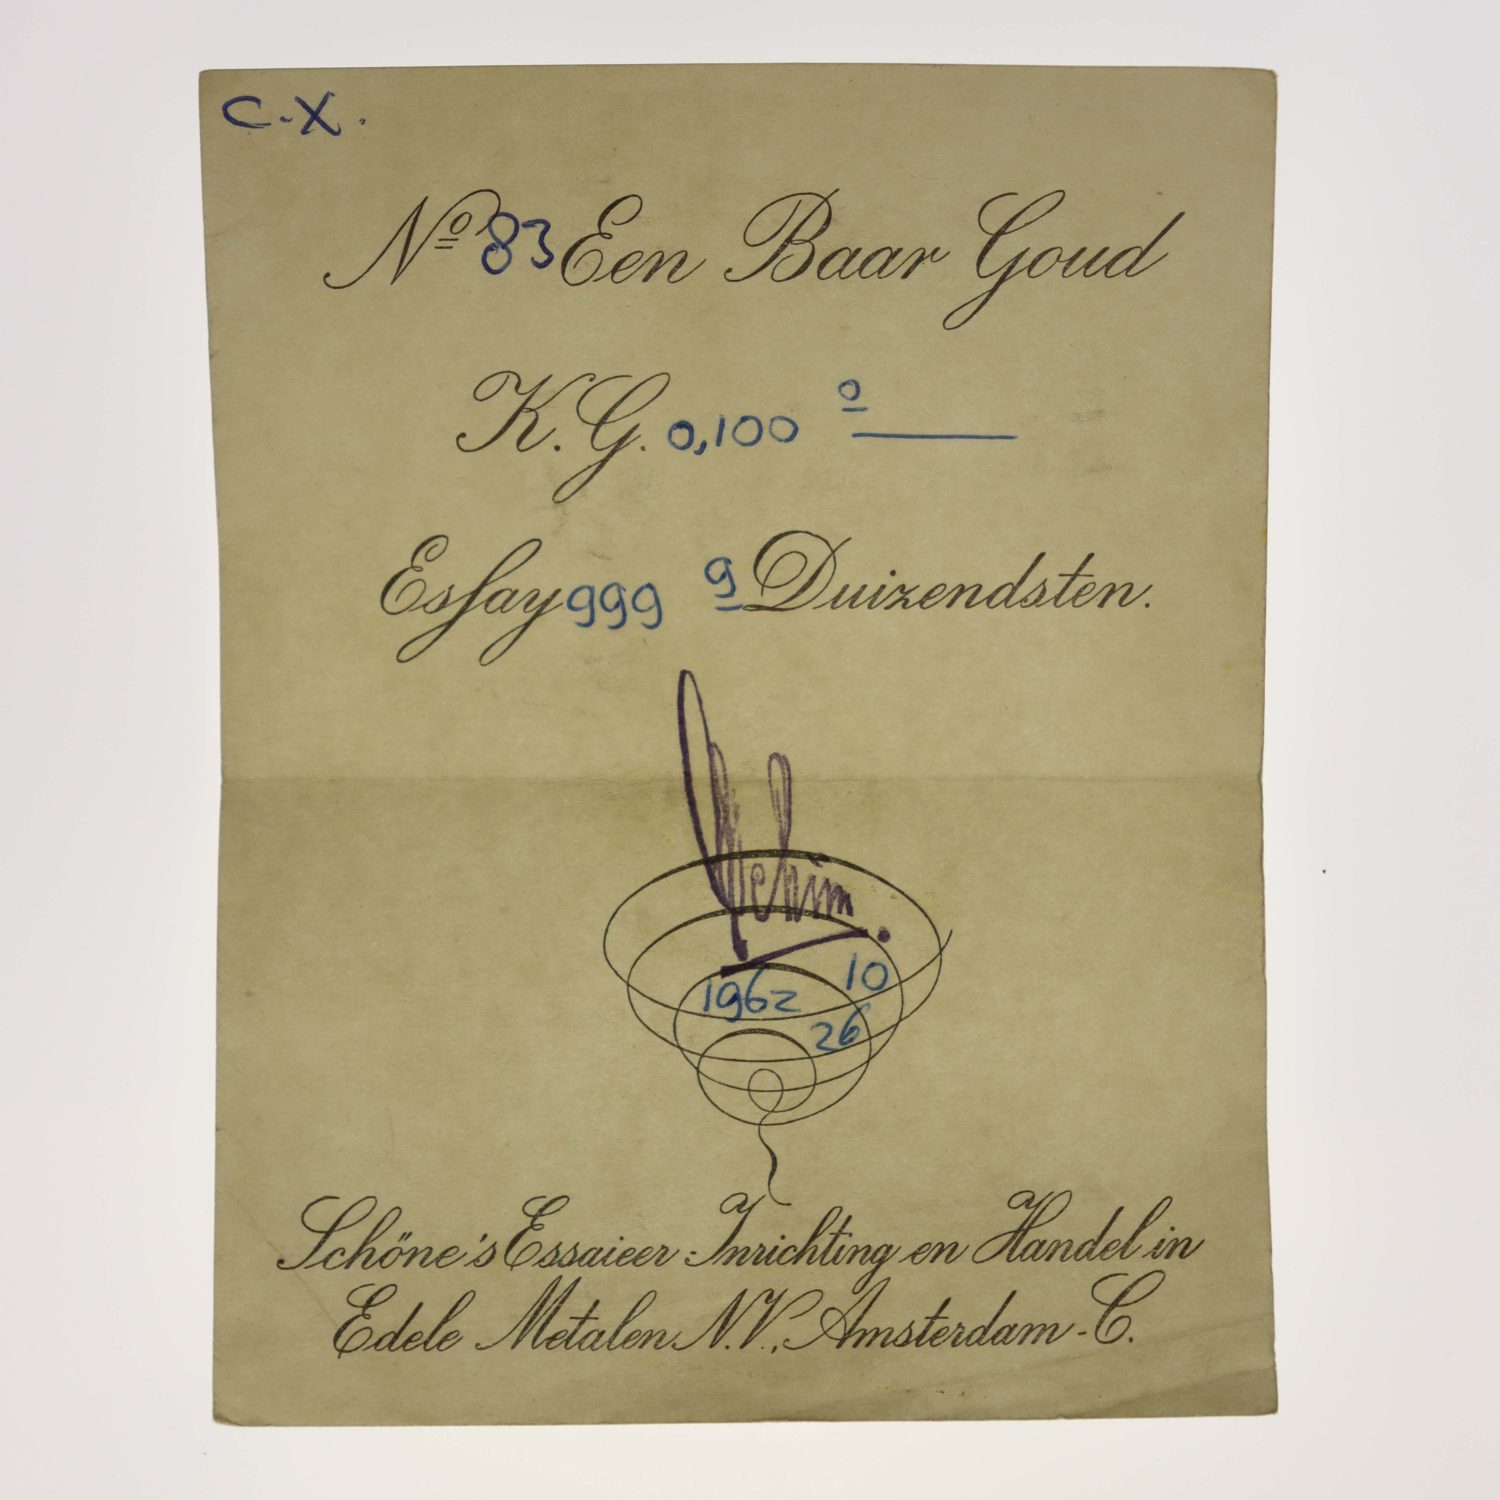 C.-X.
Nº 83 Een Baar Goud
K.G. 0,100 º
Essay 999 9 Duizendsten.
1962 10
26
Schöne's Essaieer-Inrichting en Handel in
Edele Metalen N.V., Amsterdam-C.